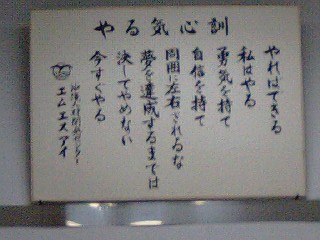 やる気心訓
やればできる
私はやる
勇気を持て
自信を持て
周囲に左右されるな
夢を達成するまでは
決してやめない
今すぐやる
エムエスアイ